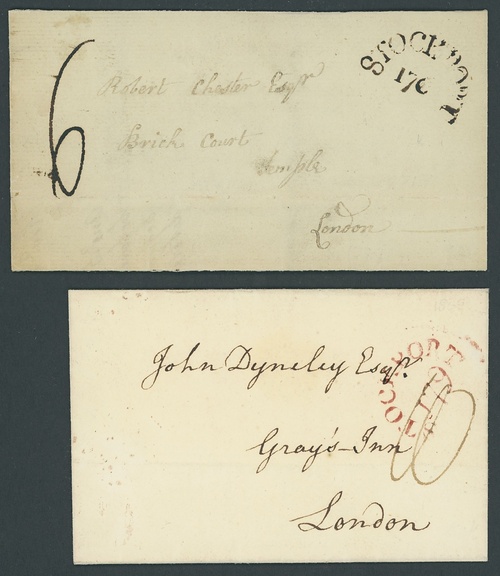 6
STOCKPORT
176
Robert Chester Esqr
Brick Court
Temple
London
John Dyneley Esqr.
Gray's-Inn
London